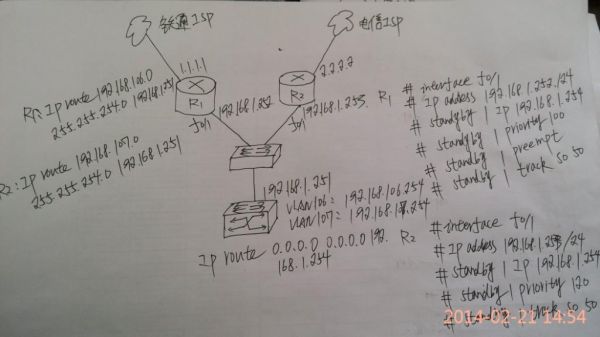 铁通ISP
电信ISP
1.1.1.1
2.2.2.2
R1: Ip route 192.168.106.0
255.255.254.0 192.168.1.251
R1
R2
192.168.1.252
192.168.1.253
fo/1
fo/1
R2: Ip route 192.168.107.0
255.255.254.0 192.168.1.251
192.168.1.251
VLAN106: 192.168.106.254
VLAN107: 192.168.107.254
Ip route 0.0.0.0 0.0.0.0 192.
168.1.254
R1 # interface fo/1
# Ip address 192.168.1.252/24
# standby 1 IP 192.168.1.254
# standby 1 priority 100
# standby 1 preempt
# standby 1 track so 50
R2 # interface fo/1
# Ip address 192.168.1.253/24
# standby 1 IP 192.168.1.254
# standby 1 priority 120
# standby 1 track so 50
2014-02-21 14:54